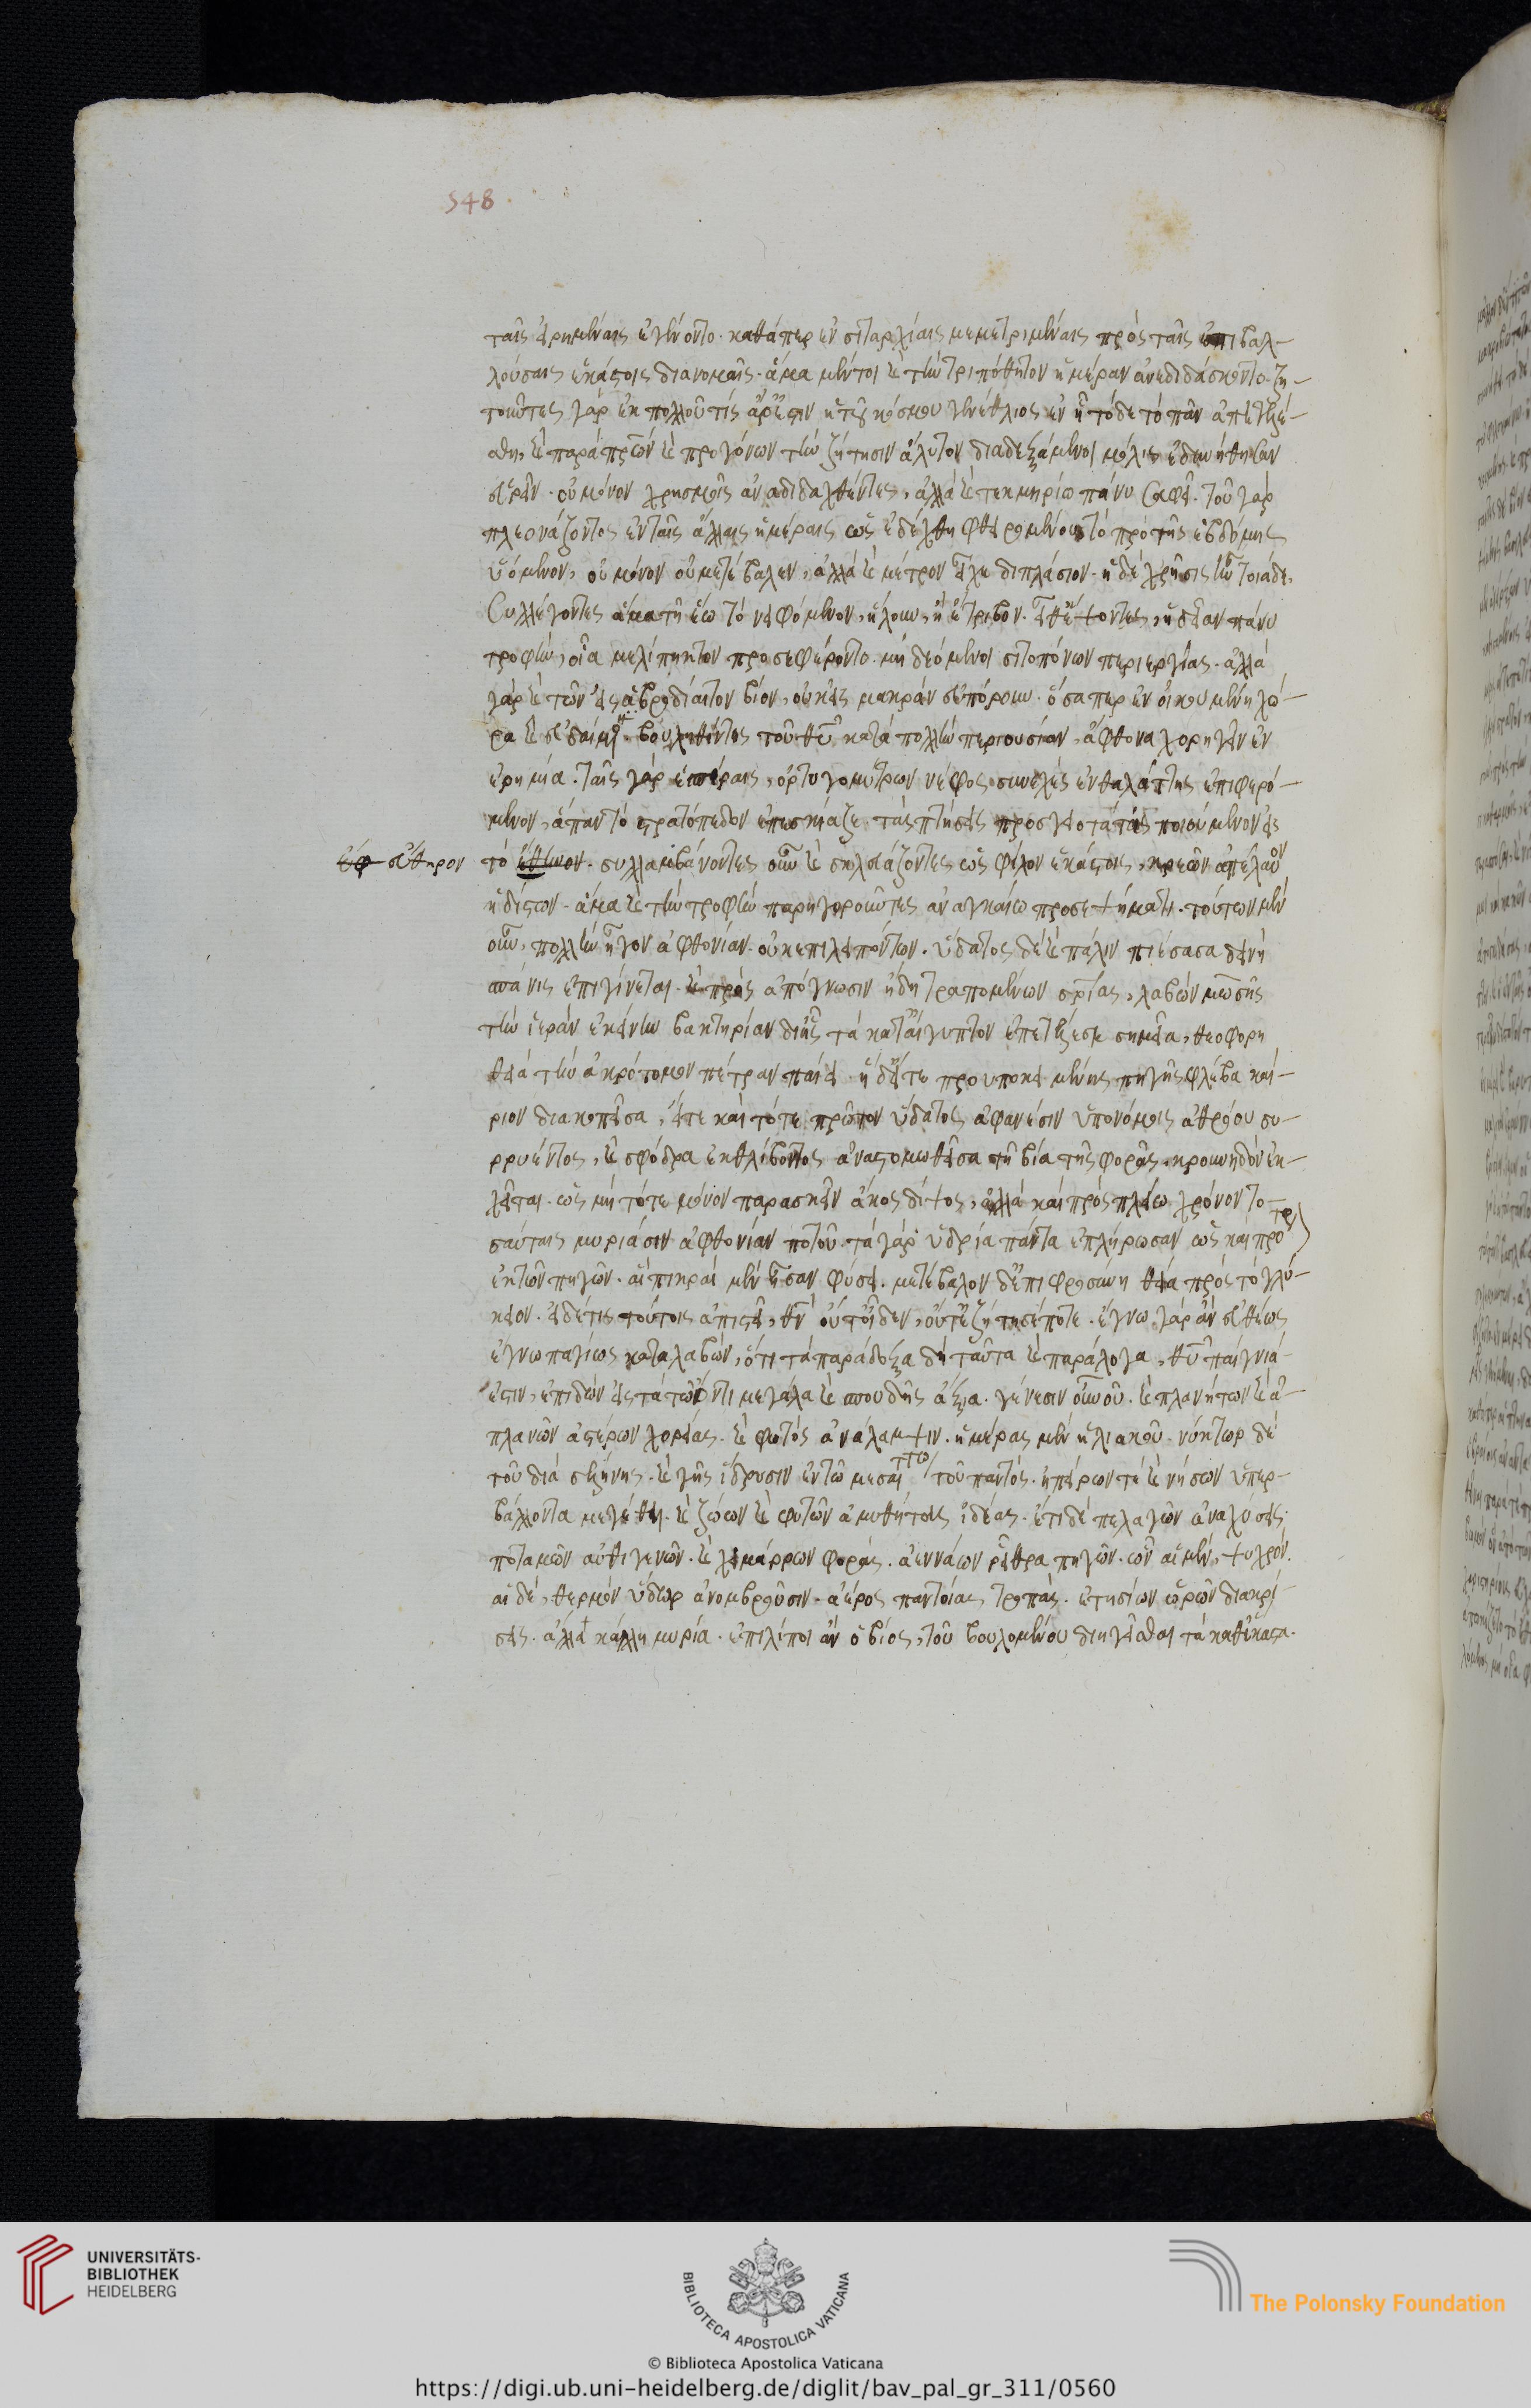 548
ταῖς εἰρημέναις ἐγένοντο. καθάπερ ἐν σιταρχίαις μεμετριμέναις πρὸς ταῖς ἐπιβαλ-
λούσαις ἑκάστοις διανομαῖς. ἅμα μέντοι καὶ τὴν τριπόθητον ἡμέραν ἀνεδιδάσκοντο. ζη-
τοῦντες γὰρ ἐκ πολλοῦ τίς ἄρ' ἔστιν ἡ τοῦ κόσμου γενέθλιος ἐν ᾗ τόδε τὸ πᾶν ἀπετελέ-
σθη, καὶ παρὰ πρων καὶ προγόνων τὴν ζήτησιν ἄλυτον διαδεξάμενοι μόλις ἐδυνήθησαν
εὑρεῖν. οὐ μόνον χρησμοῖς ἀναδιδαχθέντες, ἀλλὰ καὶ τεκμηρίω πάνυ σαφεῖ. τοῦ γὰρ
πλεονάζοντος ἐν ταῖς ἄλλαις ἡμέραις ὡς ἐδέχθη φθειρομένου τὸ πρὸ τῆς ἑβδόμης
ὑόμενον, οὐ μόνον οὐ μετέβαλεν, ἀλλὰ καὶ μέτρον εἶχε διπλάσιον. ἡ δὲ χρῆσις ἦν τοιάδε,
Συλλέγοντες ἅμα τῆ ἕω τὸ νειφόμενον, ἤλουν, ἢ ἔτριβον. εἶθ' ἕψοντες, ἡδεῖαν πάνυ
τροφὴν, οἷα μελίπηκτον προσεφέροντο. μὴ δεόμενοι σιτοπόνων περιεργίας. ἀλλὰ
γὰρ καὶ τῶν εἰς ἁβροδίαιτον βίον, οὐκ εἰς μακρὰν εὐπόρουν. ὅσαπερ ἐν οἰκουμένη χώ-
ρα καὶ εὐδαίμονι βουληθέντος τοῦ θυ κατὰ πολλὴν περιουσίαν, ἄφθονα χορηγεῖν ἐν
ἐρημία. ταῖς γὰρ ἑσπέραις, ὀρτυγομητρῶν νέφος συνεχὲς ἐν θαλάττης ἐπιφερό-
μενον, ἅπαν τὸ στρατόπεδον ἐπεσκίαζε. τὰς πτήσεις προσγειοτάτας ποιούμενον εἰς
εὔθηρον
τὸ . συλλαμβάνοντες οὖν καὶ σκευάζοντες ὡς φίλον ἑκάστοις, κρεῶν ἀπέλαυον
ἡδίστων. ἅμα καὶ τὴν τροφὴν παρηγοροῦντες ἀναγκαίω προσεψήματι. τούτων μὲν
οὖν, πολλὴν ἦγον ἀφθονίαν. οὐκ ἐπιλειπόντων. ὕδατος δὲ καὶ πάλιν πιέσασα δεινὴ
σπάνις ἐπιγίνεται. καὶ πρὸς ἀπόγνωσιν ἤδη τραπομένων σρίας, λαβὼν μωσῆς
τὴν ἱερὰν ἐκείνην βακτηρίαν δι' ἧς τὰ κατ' αἴγυπτον ἐπετέλεσε σημεῖα, θεοφορη
θεὶς τὴν ἀκρότομον πέτραν παίει. ἡ δ' εἴτε προυποκειμένης πηγῆς φλέβα καί-
ριον διακοπεῖσα, εἴτε καὶ τότε πρῶτον ὕδατος ἀφανέσιν ὑπονόμοις ἀθρόου συ-
ρρυέντος, καὶ σφόδρα ἐκθλίβοντος ἀναστομωθεῖσα τῆ βία τῆς φορᾶς, κρουνηδὸν ἐκ-
χεῖται. ὡς μὴ τότε μόνον παρασχεῖν ἄκος δίψος, ἀλλὰ καὶ πρὸς πλείω χρόνον το-
σαύταις μυριάσιν ἀφθονίαν ποτοῦ. τὰ γὰρ ὑδρία πάντα ἐπλήρωσαν ὡς καὶ πρότερ
ἐκ τῶν πηγῶν. αἳ πικραὶ μὲν ἦσαν φύσει. μετέβαλον δ' ἐπιφροσύνη θεία πρὸς τὸ γλύ-
κιον. εἰ δέ τις τούτοις ἀπιστεῖ, θν οὔτ' οἶδεν, οὔτ' ἐζήτησέ ποτε. ἔγνω γὰρ ἂν εὐθέως
ἔγνω παγίως καταλαβὼν, ὅτι τὰ παράδοξα δὴ ταῦτα καὶ παράλογα, θυ παίγνιά
ἐστιν, ἐπιδὼν εἰς τὰ τῶ ὄντι μεγάλα καὶ σπουδῆς ἄξια. γένεσιν οὐνοῦ. καὶ πλανήτων καὶ ἀ-
πλανῶν ἀστέρων χορείας. καὶ φωτὸς ἀνάλαμψιν. ἡμέρας μὲν ἡλιακοῦ. νύκτωρ δὲ
τοῦ διὰ σελήνης. καὶ γῆς ἵδρυσιν ἐν τῶ μεσαιττω τοῦ παντός. ἠπείρων τὲ καὶ νήσων ὑπερ-
βάλλοντα μεγέθη. καὶ ζώων καὶ φυτῶν ἀμυθήτους ἰδέας. ἔτι δὲ πελαγῶν ἀναχύσεις.
ποταμῶν αὐθιγενῶν. καὶ χειμάρρων φοράς. ἀεννάων ῥεῖθρα πηγῶν. ὧν αἱ μὲν, ψυχρόν.
αἱ δὲ, θερμὸν ὕδωρ ἀνομβροῦσιν. ἀέρος παντοίας τροπάς. ἐτησίων ὡρῶν διακρί-
σεις. ἀλλὰ κάλλη μυρία. ἐπιλίποι ἂν ὁ βίος, τοῦ βουλομένου διηγεῖσθαι τὰ καθέκαστα.
UNIVERSITÄTS-
BIBLIOTHEK
HEIDELBERG
BIBLIOTECA APOSTOLICA VATICANA
The Polonsky Foundation
© Biblioteca Apostolica Vaticana
https://digi.ub.uni-heidelberg.de/diglit/bav_pal_gr_311/0560